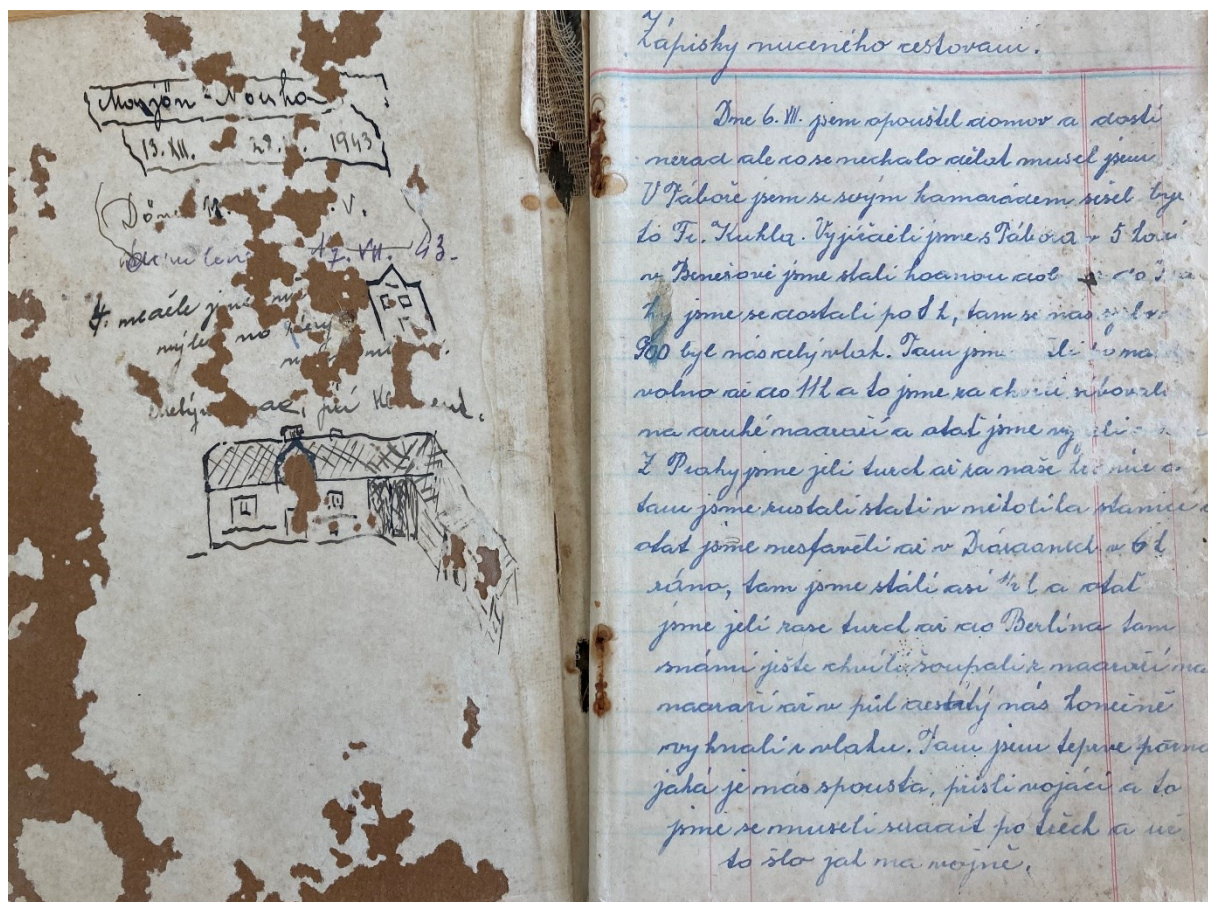 Morjön - Norsko
13. XII. 29. 1943
Dön V.
17. VII. 43.
4. neděle jsme
výlet na
Zápisky nuceného cestovani.
Dne 6. VII. jsem opouštěl domov a dosti
nerad ale co se nechalo dělat musel jsem
V Táboře jsem se svým kamarádem sešel byl
to Fr. Kuhla. Vyjížděli jsme s Tábora v 5 hod
v Benešově jsme stáli hodnou dob do
hy jsme se dostali po 8 h, tam se nás
900 byl nás celý vlak. Tam jsme
volno až do 11 h a to jsme za chvíli
na druhé nadraží a otať jsme
Z Prahy jsme jeli turd až za naše a
tam jsme zustali stati v několika stanici
otať jsme nestavěli až v Dráždanech v 6 h
ráno, tam jsme stálí asi 1/2 h a otať
jsme jeli zase turd až do Berlína tam
snámi ješte chvíli šoupali z nadraží na
nadraží až v půl desátý nás konečně
vyhnali z vlaku. Tam jsem teprve pozna
jaká je nás spousta, přisli vojáci a to
jsme se museli seradit po třech a už
to šlo jak na vojně.